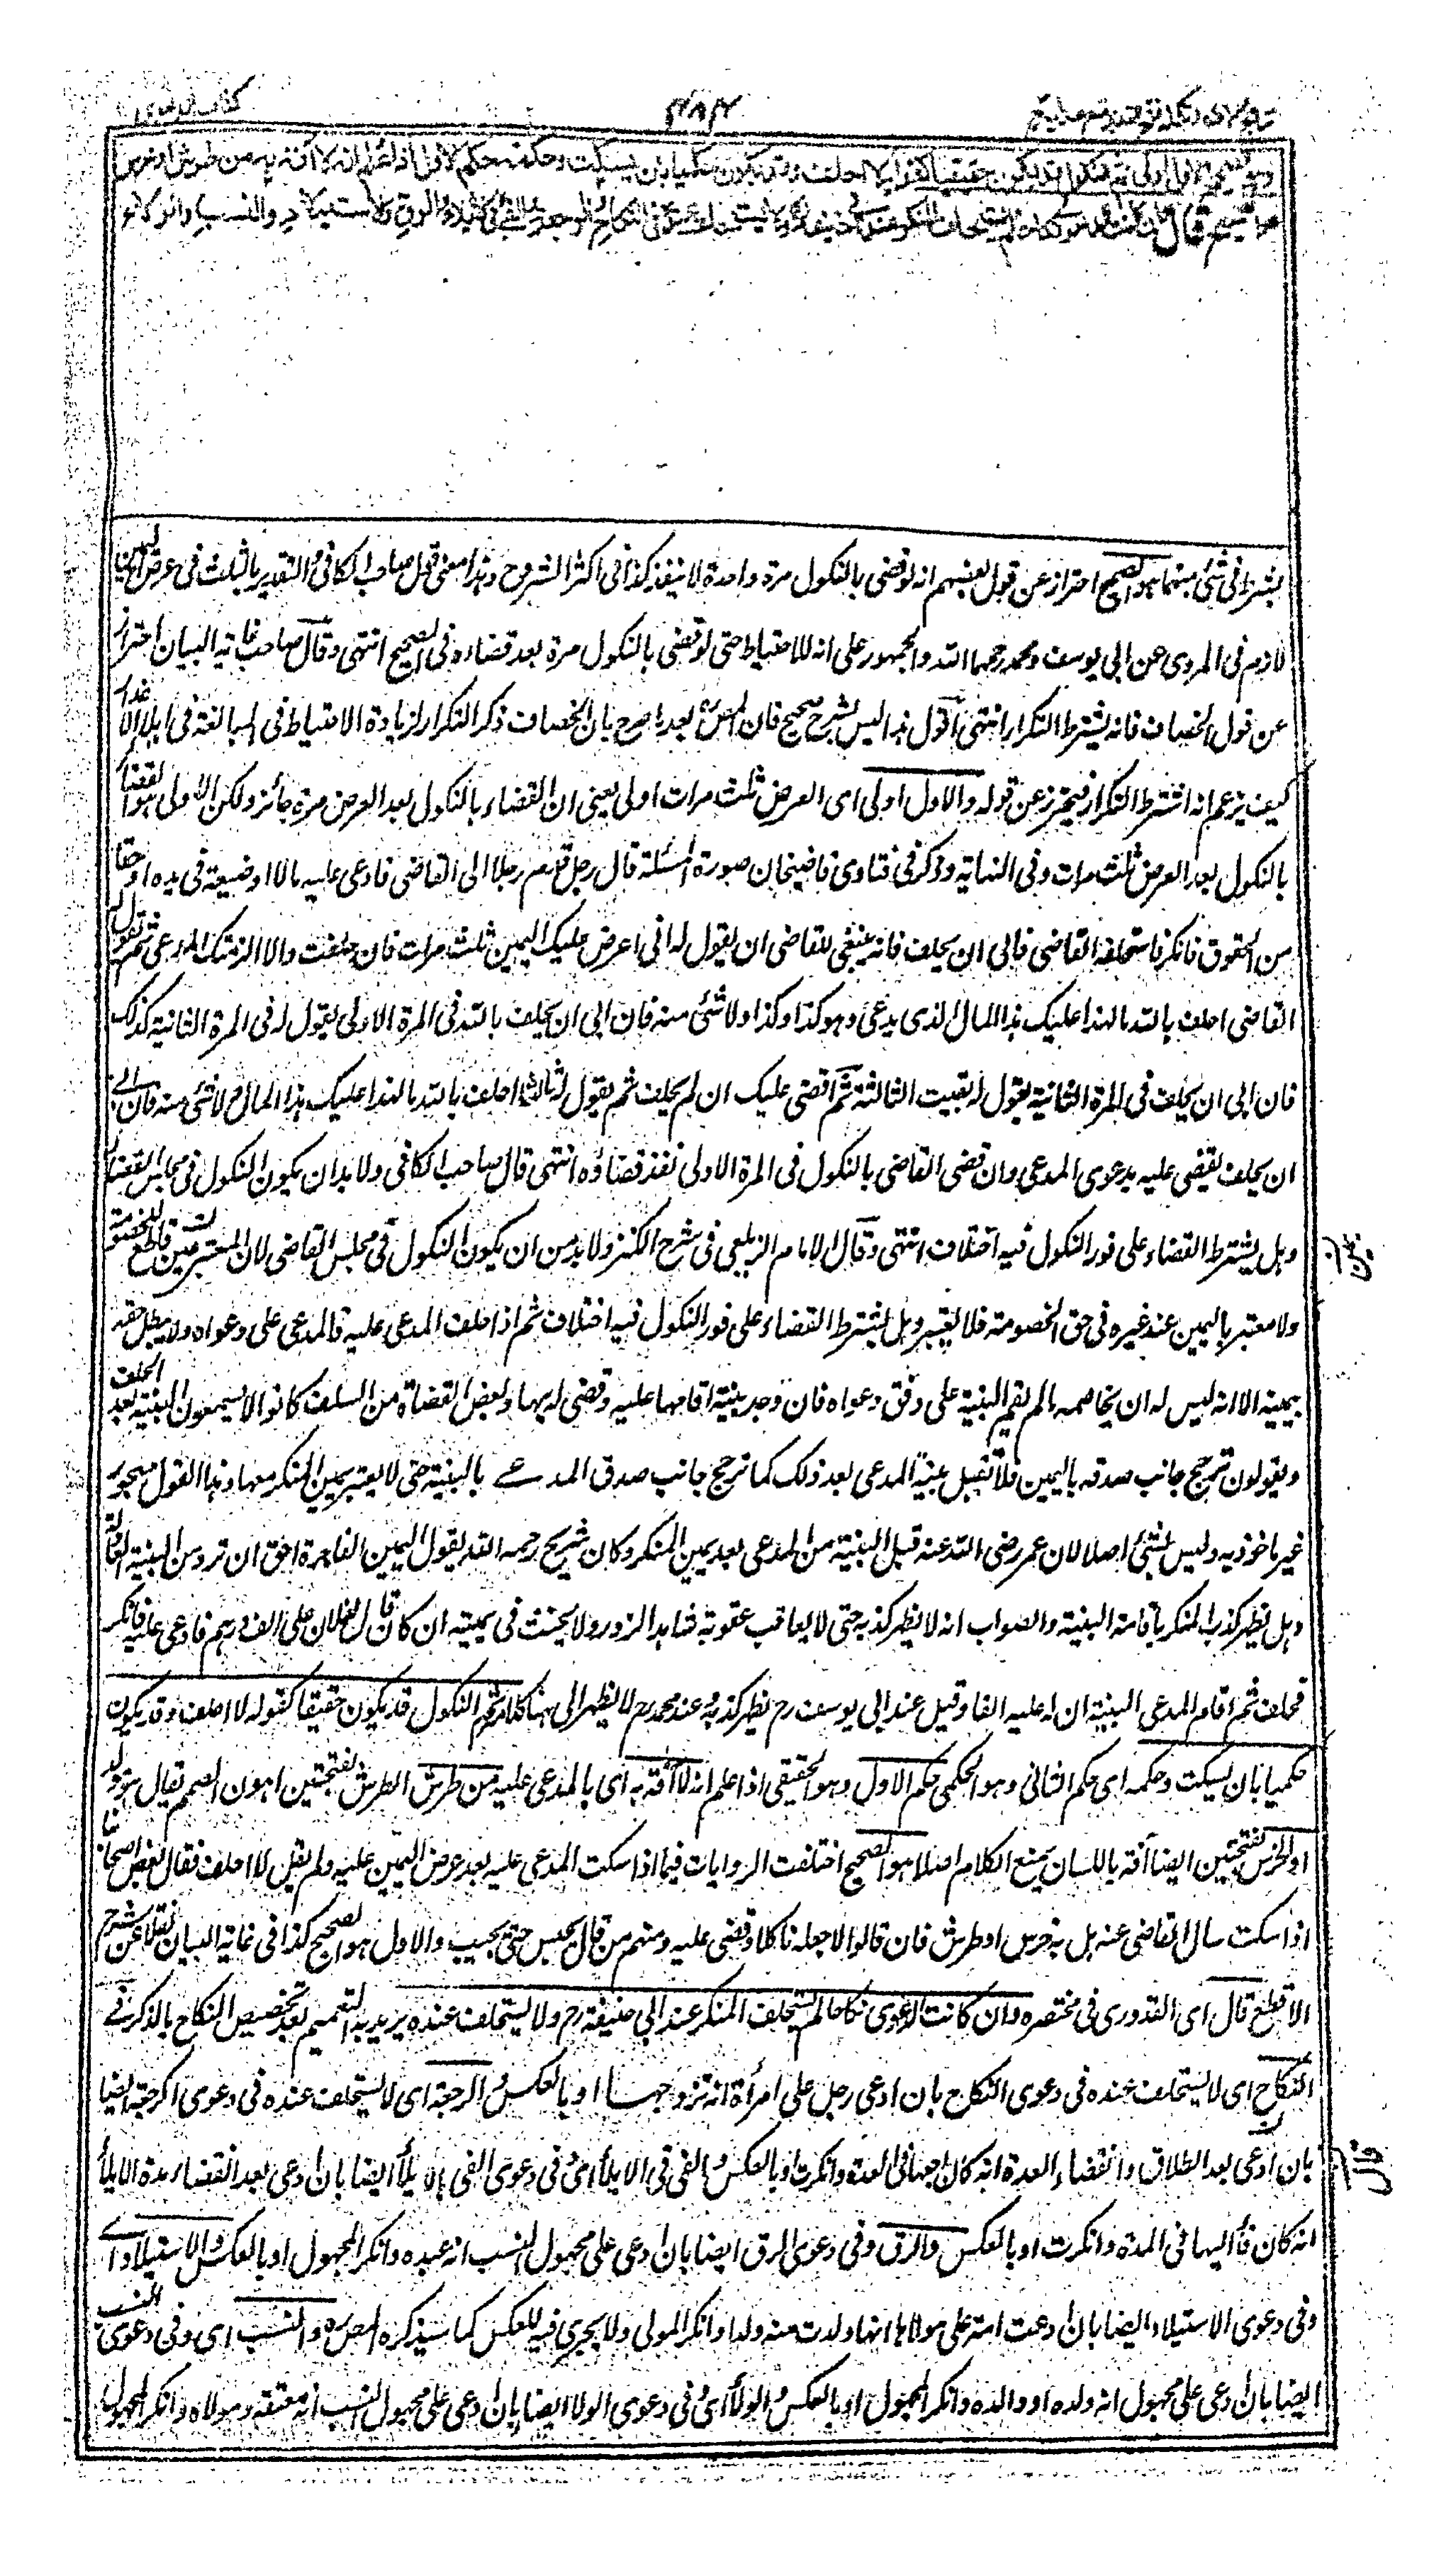 كتاب الدعوى
هو الصحيح الاول اولى ثم النكول قد يكون حقيقيا كقوله لا احلف وقد يكون حكميا بان يسكت وحكمه حكم الاول اذا علم انه لا آفة به من طرش او خرس
هو الصحيح قال وان كانت الدعوى نكاحا لم يستحلف المنكر عند ابي حنيفة ولا يستحلف عنده في النكاح والرجعة والفئ في الايلاء والرق والاستيلاد والنسب والولاء
يشترط في شئ منهما هو الصحيح احتراز عن قول بعضهم انه لو قضى بالنكول مرة واحدة لا ينفذ كذا في اكثر الشروح وهذا معنى قول صاحب الكافي والتقدير بالثلث في عرض اليمين
لازم في المروي عن ابي يوسف ومحمد رحمهما الله والجمهور على انه للاحتياط حتى لو قضى بالنكول مرة بعد قضاءه في الصحيح انتهى وقال صاحب غاية البيان احتراز
عن قول الخصاف فانه يشترط التكرار انتهى اقول هذا ليس بشرح صحيح فان المص بعد ما صرح بان الخصاف ذكر التكرار لزيادة الاحتياط في المبالغة في ابلاء الاعذار
كيف يزعم انه اشترط التكرار فيحترز عن قوله والاول اولى اى العرض ثلث مرات اولى يعنى ان القضاء بالنكول بعد العرض مرة جائز ولكن الاولى هو القضاء
بالنكول بعد العرض ثلث مرات وفى النهاية وذكر فى فتاوى قاضيخان صورة المسئلة قال رجل قدم رجلا الى القاضى فادعى عليه مالا او ضيعة فى يده او حقا
من الحقوق فانكر فاستحلفه القاضى فابى ان يحلف فانه ينبغى للقاضى ان يقول له انى اعرض عليك اليمين ثلث مرات فان حلفت والا الزمتك المدعى ثم يقول له
القاضى احلف بالله ما لهذا عليك هذا المال الذى يدعى وهو كذا وكذا ولا شئ منه فان ابى ان يحلف بالله فى المرة الاولى يقول له فى المرة الثانية كذلك
فان ابى ان يحلف فى المرة الثانية يقول له بقيت الثالثة ثم اقضى عليك ان لم يحلف ثم يقول له ثالثا احلف بالله ما لهذا عليك هذا المال ولا شئ منه فان ابى
ان يحلف يقضى عليه بدعوى المدعى وان قضى القاضى بالنكول فى المرة الاولى نفذ قضاؤه انتهى قال صاحب الكافى ولا بد ان يكون النكول فى مجلس القضاء
وهل يشترط القضاء على فور النكول فيه اختلاف انتهى وقال الامام الزيلعى فى شرح الكنز ولا بد من ان يكون النكول فى مجلس القاضى لان المعتبر يمين قاطع للخصومة
ولا معتبر باليمين عند غيره فى حق الخصومة فلا يعتبر وهل يشترط القضاء على فور النكول فيه اختلاف ثم اذا حلف المدعى عليه فالمدعى على دعواه ولا يبطل حقه
بيمينه الا انه ليس له ان يخاصمه ما لم يقم البينة على وفق دعواه فان وجد بينة اقامها عليه وقضى له بها وبعض القضاة من السلف كانوا لا يسمعون البينة بعد الحلف
ويقولون ترجح جانب صدقه باليمين فلا تقبل بينة المدعى بعد ذلك كما ترجح جانب صدق المدعى بالبينة حتى لا يعتبر يمين المنكر معها وهذا القول مهجور
غير ماخوذ به وليس بشئ اصلا لان عمر رضى الله عنه قبل البينة من المدعى بعد يمين المنكر وكان شريح رحمه الله يقول اليمين الفاجرة احق ان ترد من البينة العادلة
وهل يظهر كذب المنكر باقامة البينة والصواب انه لا يظهر كذبه حتى لا يعاقب عقوبة شاهد الزور ولا يحنث فى يمينه ان كان قال لفلان على الف درهم فادعى عليه فانكر
فحلف ثم اقام المدعى البينة ان له عليه الفا وقيل عند ابى يوسف رح يظهر كذبه وعند محمد رح لا يظهر الى هنا كلامه ثم النكول قد يكون حقيقا كقوله لا احلف وقد يكون
حكميا بان يسكت وحكمه اى حكم الثانى وهو الحكمى حكم الاول وهو الحقيقى اذا علم انه لا آفة به اى بالمدعى عليه من طرش الطرش بفتحتين اهون الصمم يقال هو مولد
او خرس بفتحتين ايضا آفة باللسان يمنع الكلام اصلا هو الصحيح اختلفت الروايات فيما اذا سكت المدعى عليه بعد عرض اليمين عليه ولم يقل لا احلف فقال بعض اصحابنا
اذا سكت سال القاضى عنه هل به خرس او طرش فان قالوا لا جعله ناكلا وقضى عليه ومنهم من قال يحبس حتى يجيب والاول هو الصحيح كذا فى غاية البيان نقلا عن شرح
الاقطع قال اى القدورى فى مختصره وان كانت الدعوى نكاحا لم يستحلف المنكر عند ابى حنيفة رح ولا يستحلف عنده يريد به التعميم بعد تخصيص النكاح بالذكر فى
النكاح اى لا يستحلف عنده فى دعوى النكاح بان ادعى رجل على امرأة انه تزوجها او بالعكس والرجعة اى لا يستحلف عنده فى دعوى الرجعة ايضا
بان ادعى بعد الطلاق وانقضاء العدة انه كان راجعها فى العدة وانكرت او بالعكس والفئ فى الايلاء اى وفى دعوى الفئ بالايلاء ايضا بان ادعى بعد انقضاء مدة الايلاء
انه كان فاء اليها فى المدة وانكرت او بالعكس والرق وفى دعوى الرق ايضا بان ادعى على مجهول النسب انه عبده وانكر المجهول او بالعكس والاستيلاد اى
وفى دعوى الاستيلاد ايضا بان ادعت امة على مولاها انها ولدت منه ولدا وانكر المولى ولا يجرى فيه العكس كما سيذكره المص ره والنسب اى وفى دعوى النسب
ايضا بان ادعى على مجهول انه ولده او والده وانكر المجهول او بالعكس والولاء اى وفى دعوى الولاء ايضا بان ادعى على مجهول النسب انه معتقه ومولاه وانكر المجهول